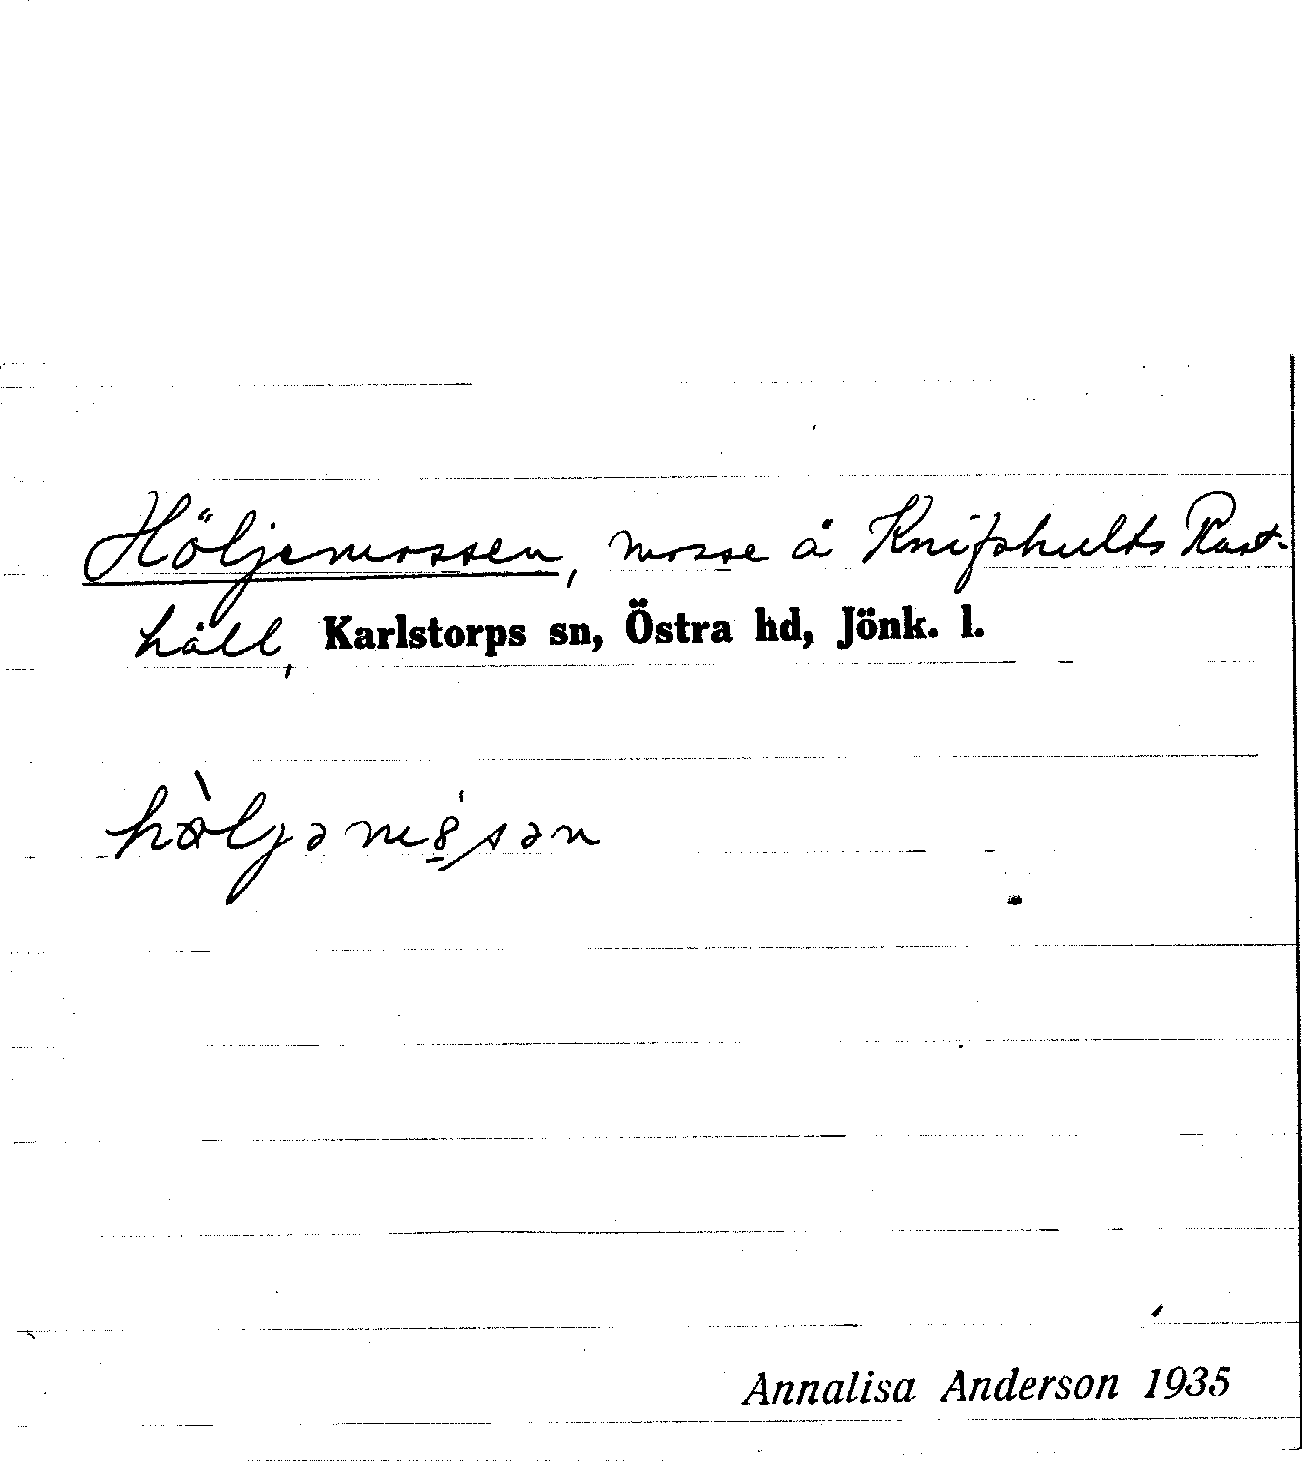 Höljemossen, mosse å Knifshults Rast-
håll, Karlstorps sn, Östra hd, Jönk. l.
Annalisa Anderson 1935